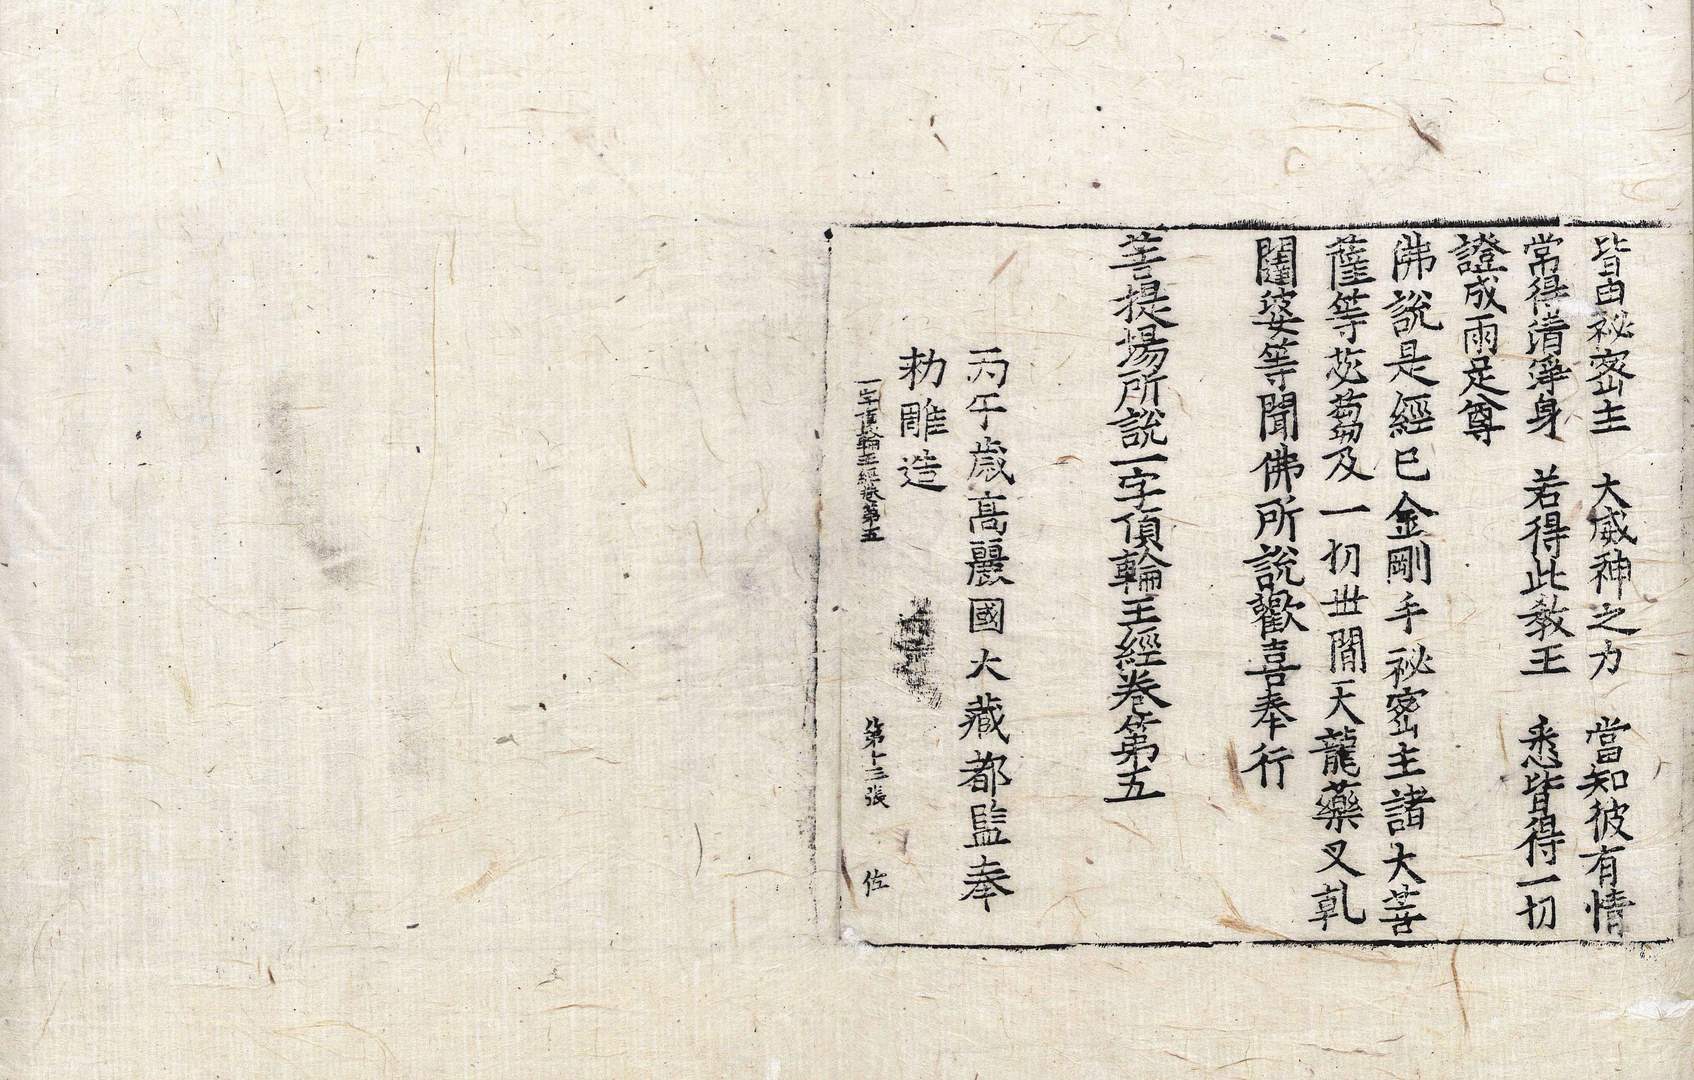 皆由祕密主　大威神之力　當知彼有情
常得清淨身　若得此教王　悉皆得一切
證成兩足尊
佛說是經已金剛手祕密主諸大菩
薩等苾芻及一切世間天龍藥叉乹
闥婆等聞佛所說歡喜奉行
菩提場所說一字頂輪王經卷第五
丙午歲高麗國大藏都監奉
勑雕造
一字頂輪王經卷第五　第十三張　佐